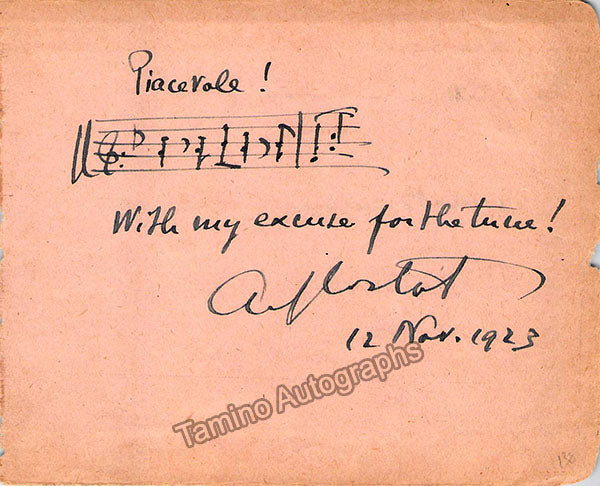 Piacevole !
With my excuse for the tune!
Alf Cortot
12 Nov. 1923
Tamino Autographs